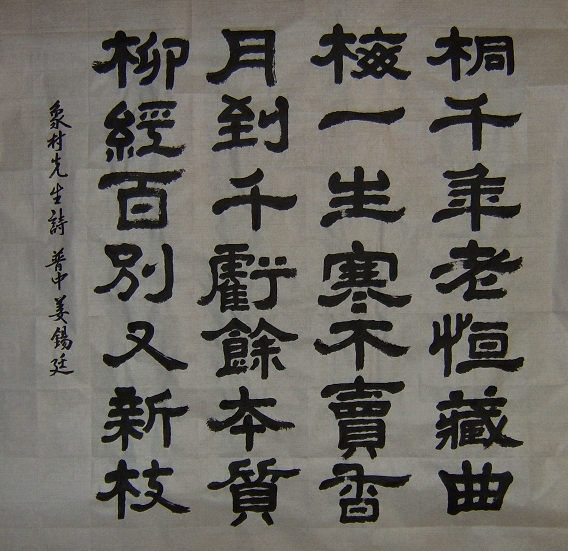 桐千年老恒藏曲
梅一生寒不賣香
月到千虧餘本質
柳經百別又新枝
象村先生詩 普中姜錫廷